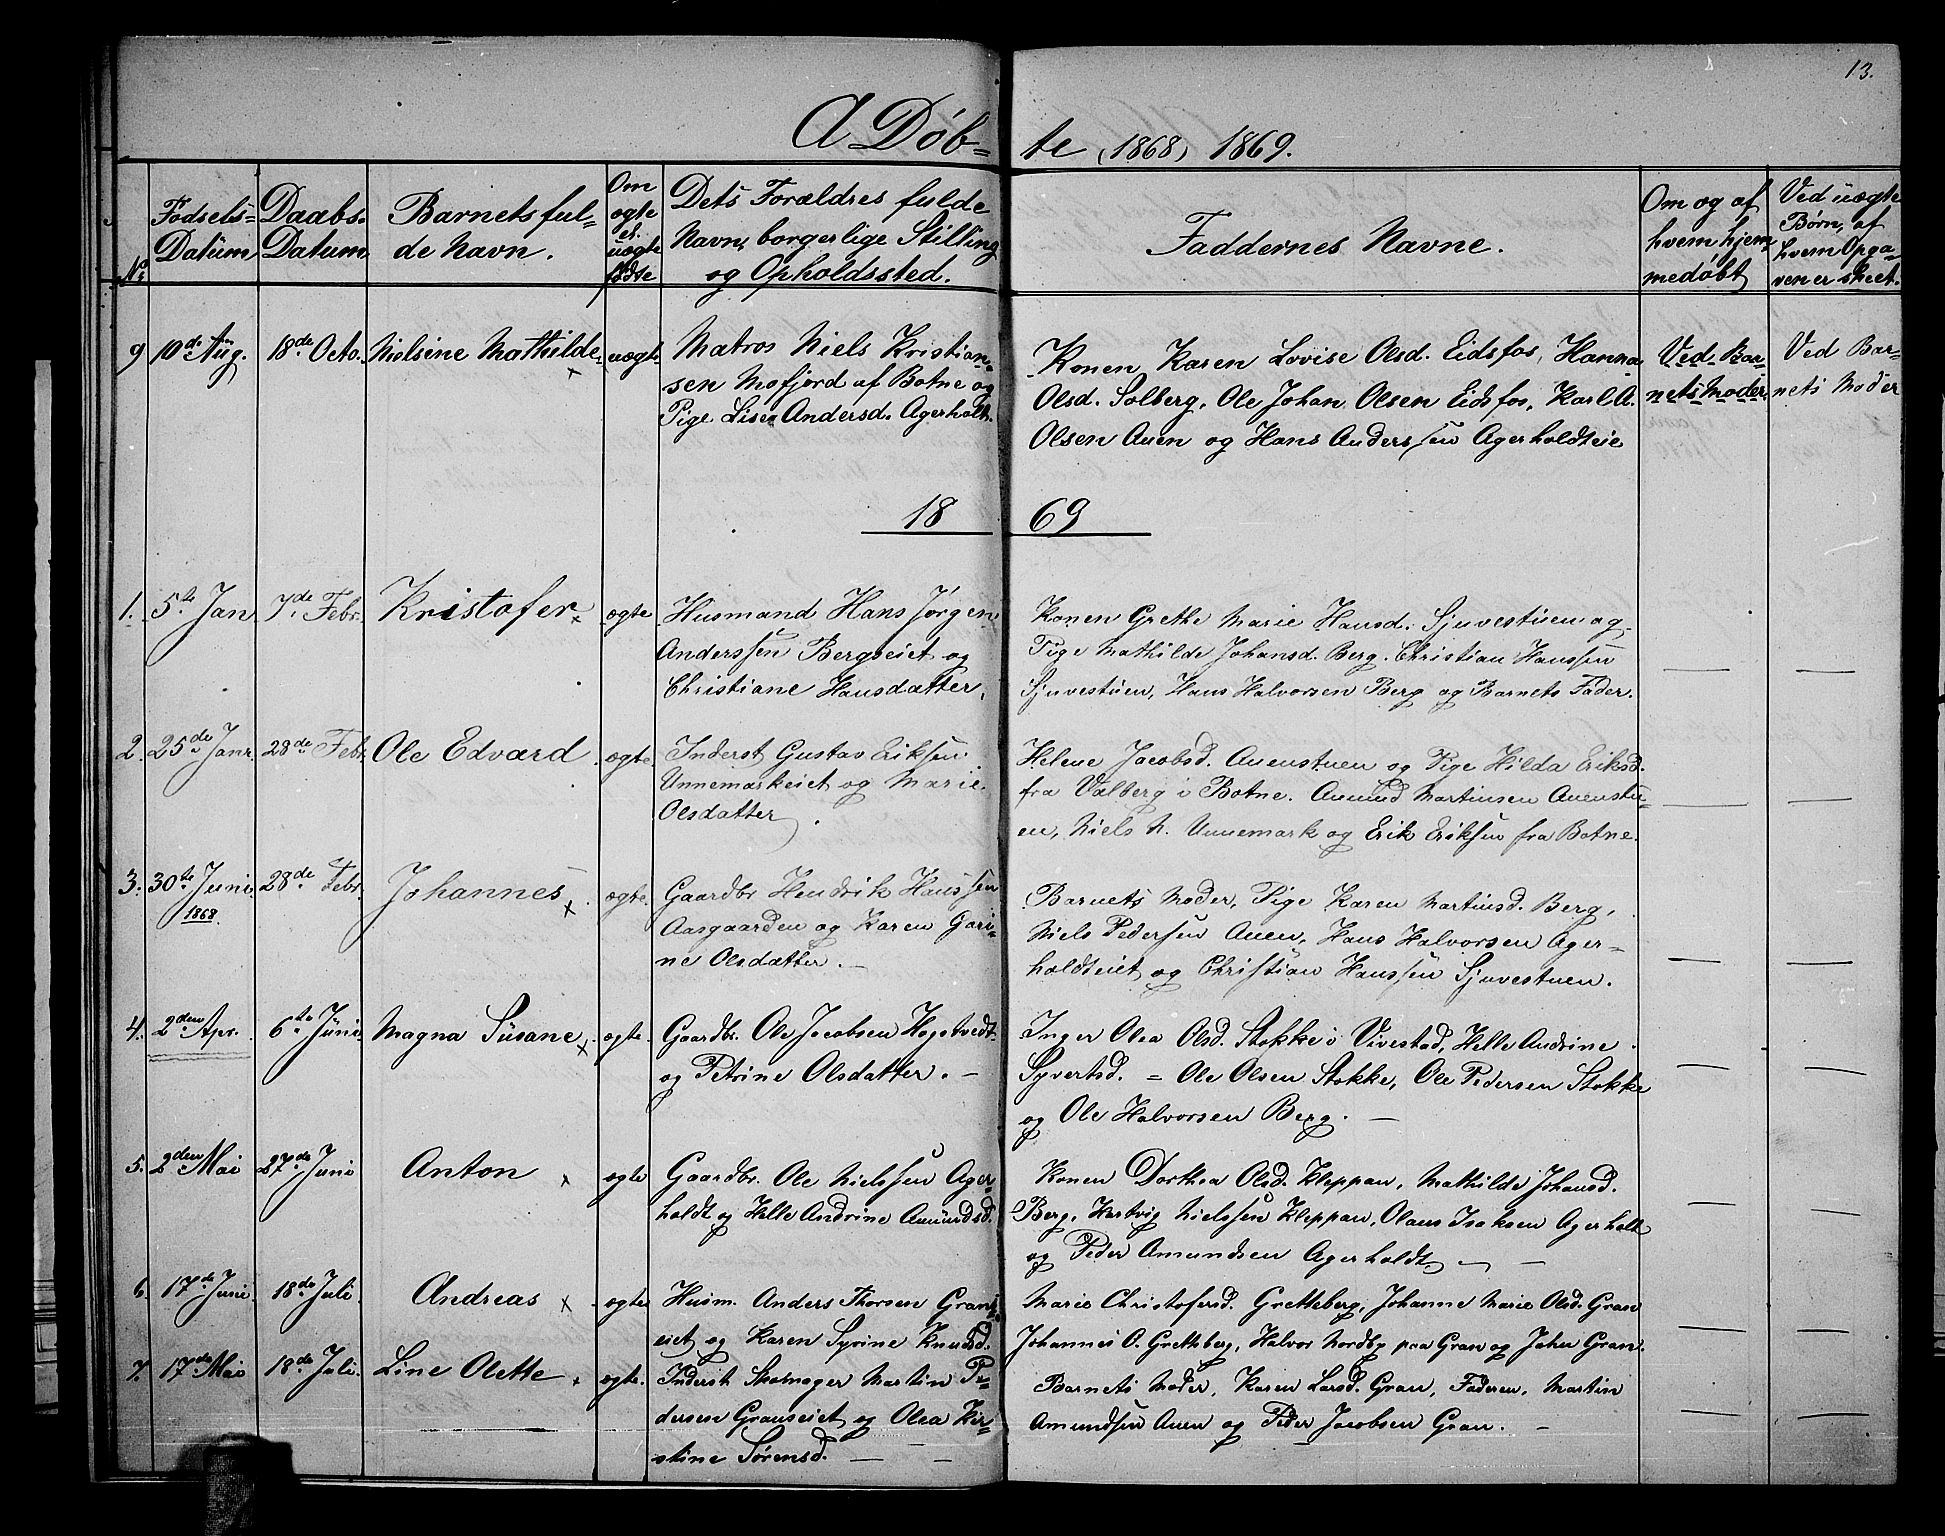 13.
A Døb-
te (1868) 1869.
No
Fødsels-
Datum
Daabs-
Datum
Barnets ful-
de Navn.
Om
ægte
el.
uægte
fødte
Dets Forældres fulde
Navn, borgerlige Stilling
og Opholdssted.
Faddernes Navne.
Om og af
hvem hjem-
medøbt
Ved uægte
Børn, af
hvem Opga-
ven er skeet.
9 10de Aug. 18de Octo. Nielsine Mathilde uægte
Matros Niels Kristian-
sen Mofjord af Botne og
Pige Lise Andersd. Agerholt.
Konen Karen Lovise Olsd. Eidsfos, Hanna
Olsd. Solberg, Ole Johan Olsen Eidsfos, Karl A.
Olsen Auen og Hans Anderssen Agerholdteie
Ved Bar-
nets Moder.
Ved Bar-
nets Moder
18 69
1. 5te Jan 7de Febr. Kristofer ægte
Husmand Hans Jørgen
Anderssen Bergseiet og
Christiane Hansdatter.
Konen Grethe Marie Hansd. Sjuvestuen og
Pige Mathilde Johansd. Berg. Christian Hanssen
Sjuvestuen, Hans Halvorsen Berg og Barnets Fader.
2. 25de Janr. 28de Febr. Ole Edvard ægte.
Inderst Gustav Eriksen
Unnemarkeiet og Marie
Olsdatter.
Helene Jacobsd. Auenstuen og Pige Hilda Eriksd.
fra Valberg i Botne. Amund Martinsen Auenstu-
en, Niels N. Unnemark og Erik Eriksen fra Botne.
3. 30te Juni 28de Febr. Johannes ægte.
1868
Gaardbr. Hendrik Hanssen
Aasgaarden og Karen Gori-
ne Olsdatter. —
Barnets Moder, Pige Karen Martinsd. Berg,
Niels Pedersen Auen, Hans Halvorsen Ager-
holdteiet og Christian Hanssen Sjuvestuen.
4. 2den Apr. 6te Juni Magna Susane ægte.
Gaardbr. Ole Jacobsen Hogstvedt
og Petrine Olsdatter. —
Inger Olea Olsd. Stokke i Vivestad, Helle Andrine
Syvertsd. = Ole Olsen Stokke, Ole Pedersen Stokke
og Ole Halvorsen Berg. —
5. 2den Mai 27de Juni Anton ægte
Gaardbr. Ole Nielssen Ager-
holdt og Helle Andrine Amundsd.
Konen Dorthea Olsd. Kleppan, Mathilde Johansd.
Berg, Hartvig Nielssen Kleppan, Olaus Isaksen Agerholt
og Peder Amundsen Agerholdt. —
6. 17de Juni 18de Juli Andreas ægte
Husm. Anders Thorsen Grans-
eiet og Karen Syrine Knudsd.
Marie Christofersd. Gretteberg, Johanne Marie Olsd. Gran
Johannes O. Gretteberg, Halvor Nordby paa Gran og John Gran.
7. 17de Mai 18de Juli. Line Olette ægte.
Inderst Skomager Martin Pe-
dersen Granseiet og Olea Kir-
stine Sørensd. —
Barnets Moder, Karen Larsd. Gran, Faderen, Martin
Amundsen Auen og Peder Jacobsen Gran. —